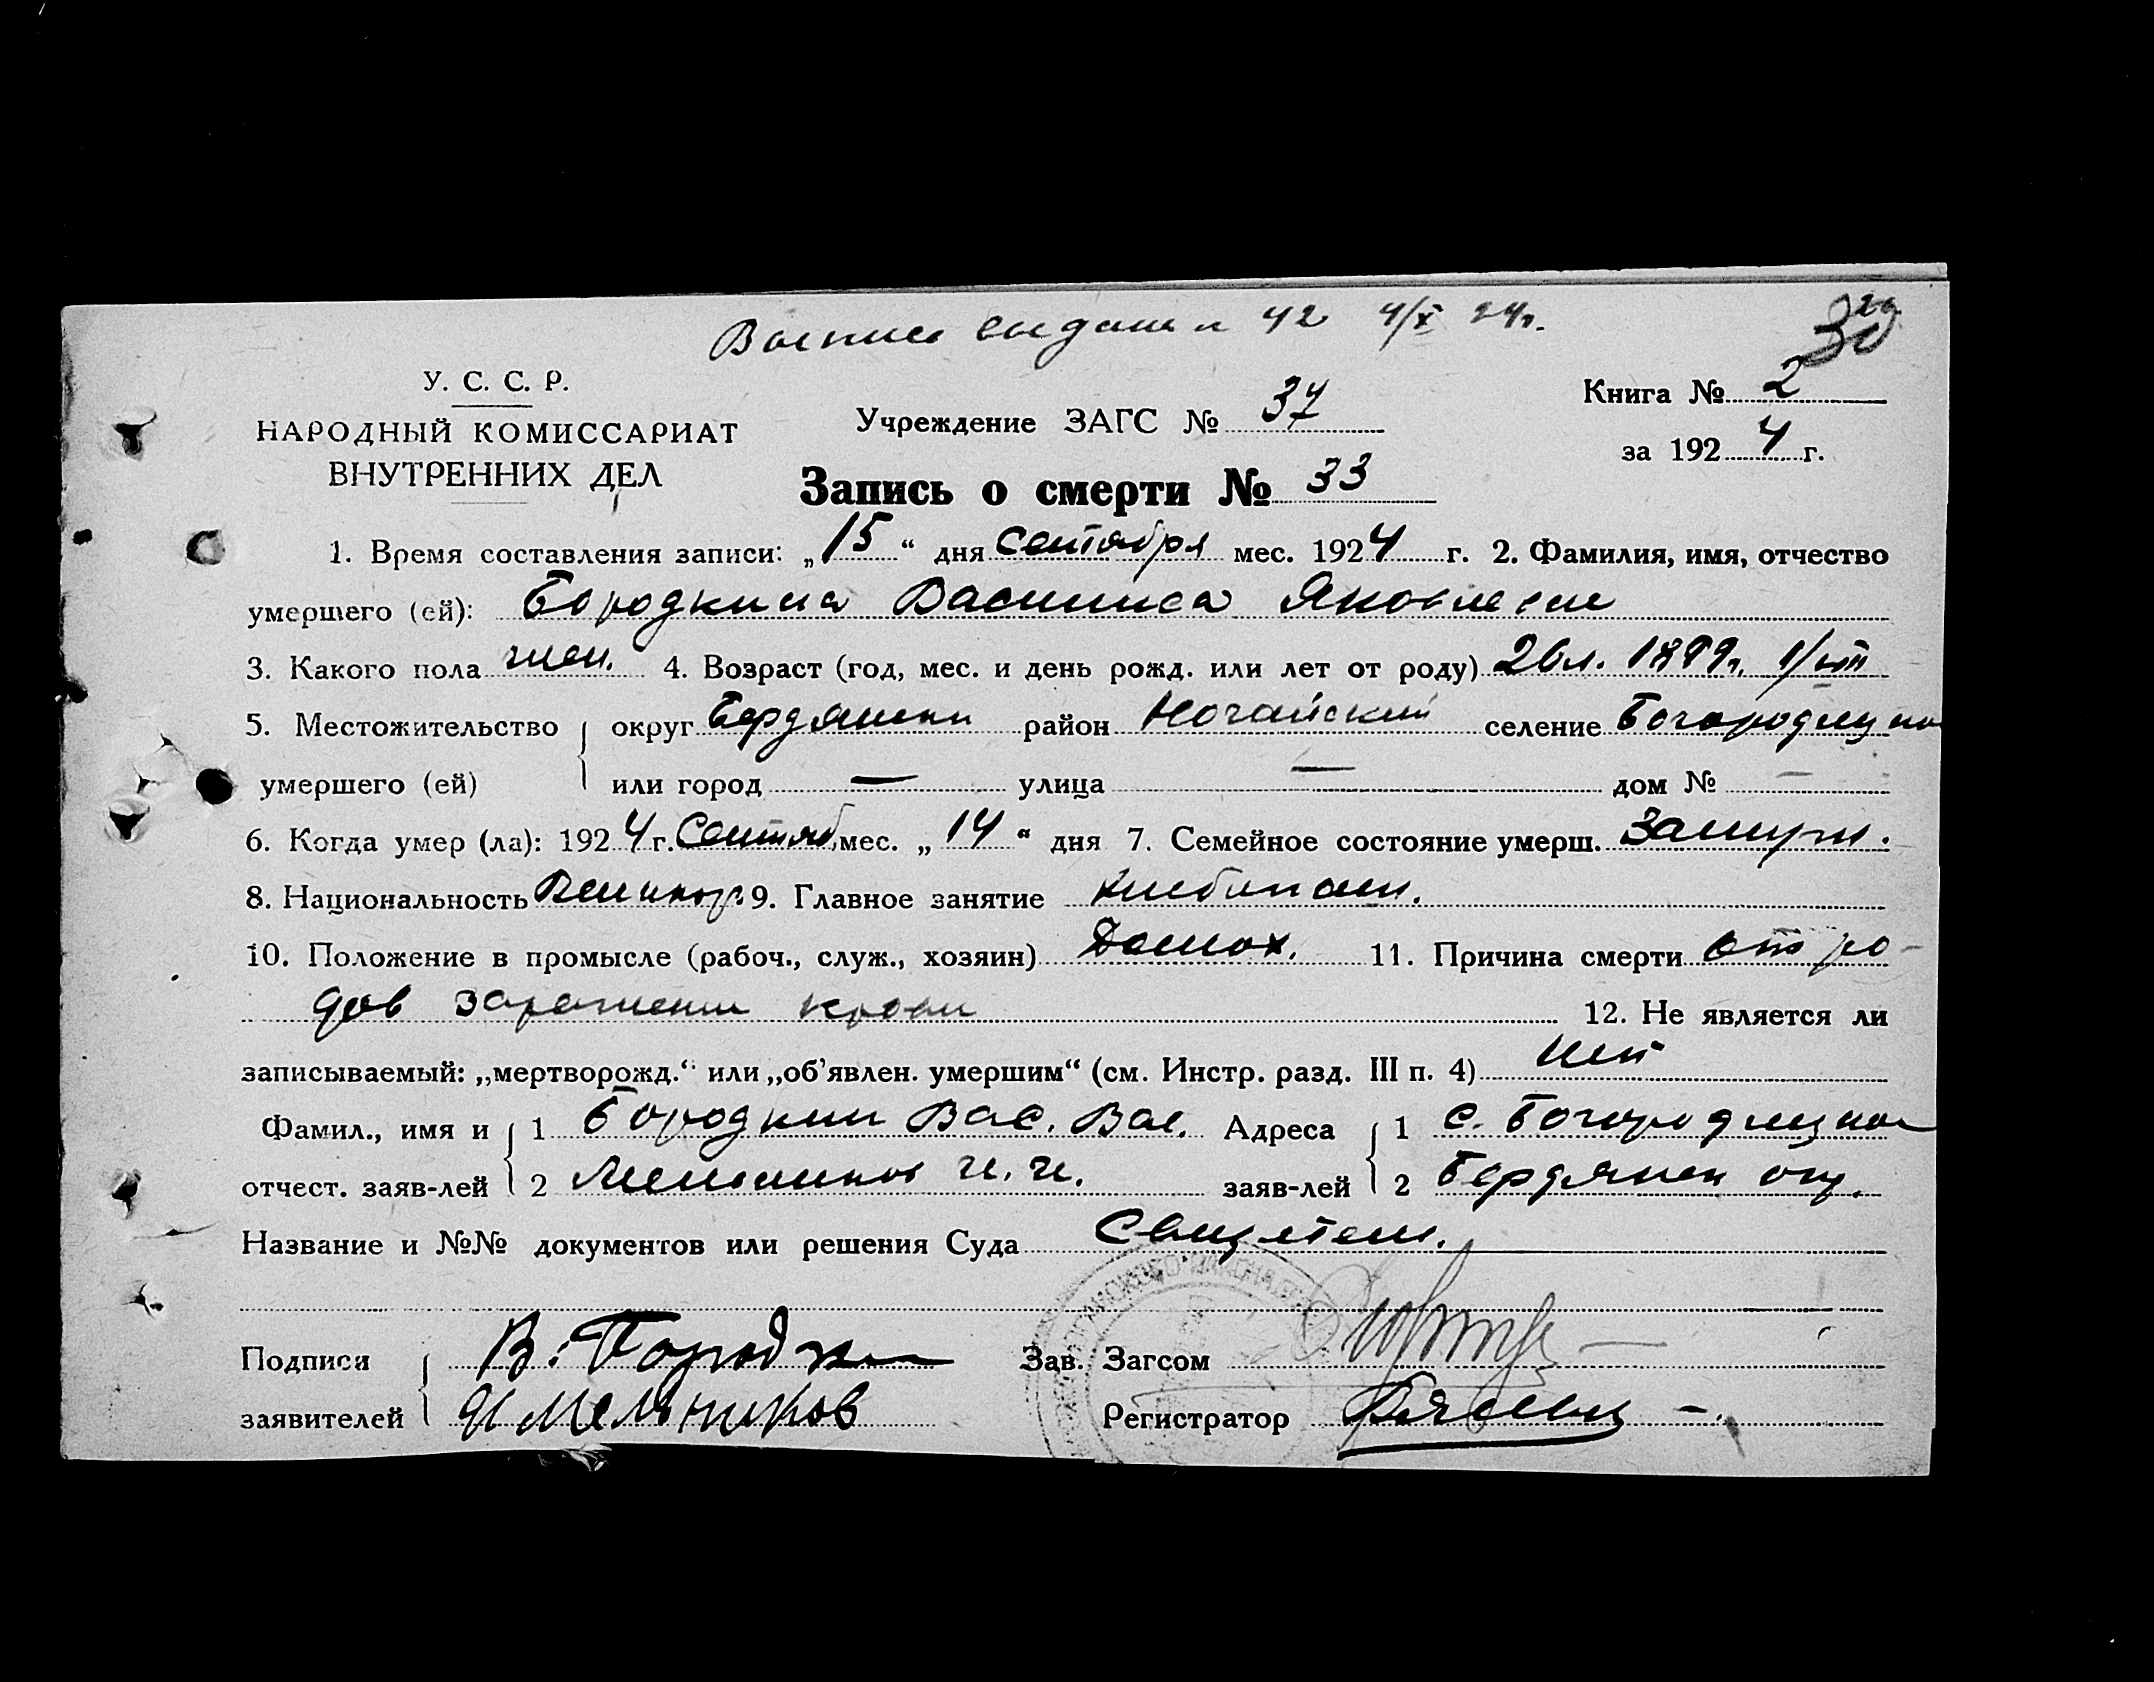 Выпись выдана № 42 4/X 24г.
29
30
У. С. С. Р.
НАРОДНЫЙ КОМИССАРИАТ
ВНУТРЕННИХ ДЕЛ
Учреждение ЗАГС № 37
Книга № 2
за 1924 г.
Запись о смерти № 33
1. Время составления записи: „15“ дня Сентября мес. 1924 г. 2. Фамилия, имя, отчество
умершего (ей): Бородкина Василиса Яковлевн
3. Какого пола жен. 4. Возраст (год, мес. и день рожд. или лет от роду) 26л.
5. Местожительство округ Бердянский район Ногайский селение Богородицкое
умершего (ей) или город — улица — дом № —
6. Когда умер (ла): 1924 г. Сентяб. мес. „14“ дня 7. Семейное состояние умерш. Замужн.
8. Национальность Великор. 9. Главное занятие Хлебопаш.
10. Положение в промысле (рабоч., служ., хозяин) Домох. 11. Причина смерти от ро-
дов заражение крови 12. Не является ли
записываемый: „мертворожд.“ или „об’явлен. умершим“ (см. Инстр. разд. III п. 4) нет
Фамил., имя и 1 Бородкин Вас. Вас. Адреса 1 с. Богородицкое
отчест. заяв-лей 2 Мельников И. И. заяв-лей 2 Бердянск окр.
Название и №№ документов или решения Суда
Подписи В. Бородкин Зав. Загсом
заявителей Мельников Регистратор